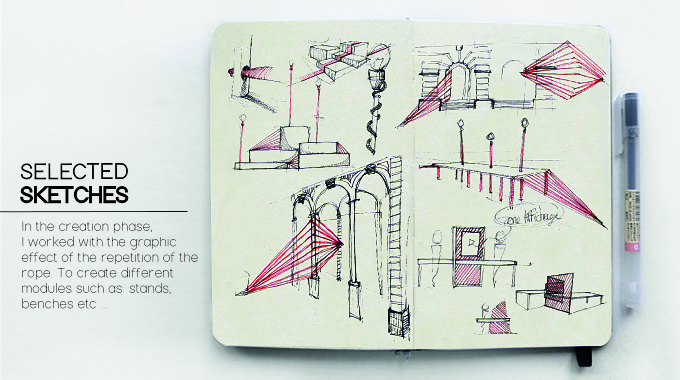 SELECTED
SKETCHES
In the creation phase,
I worked with the graphic
effect of the repetition of the
rope. To create different
modules such as: stands,
benches etc ...